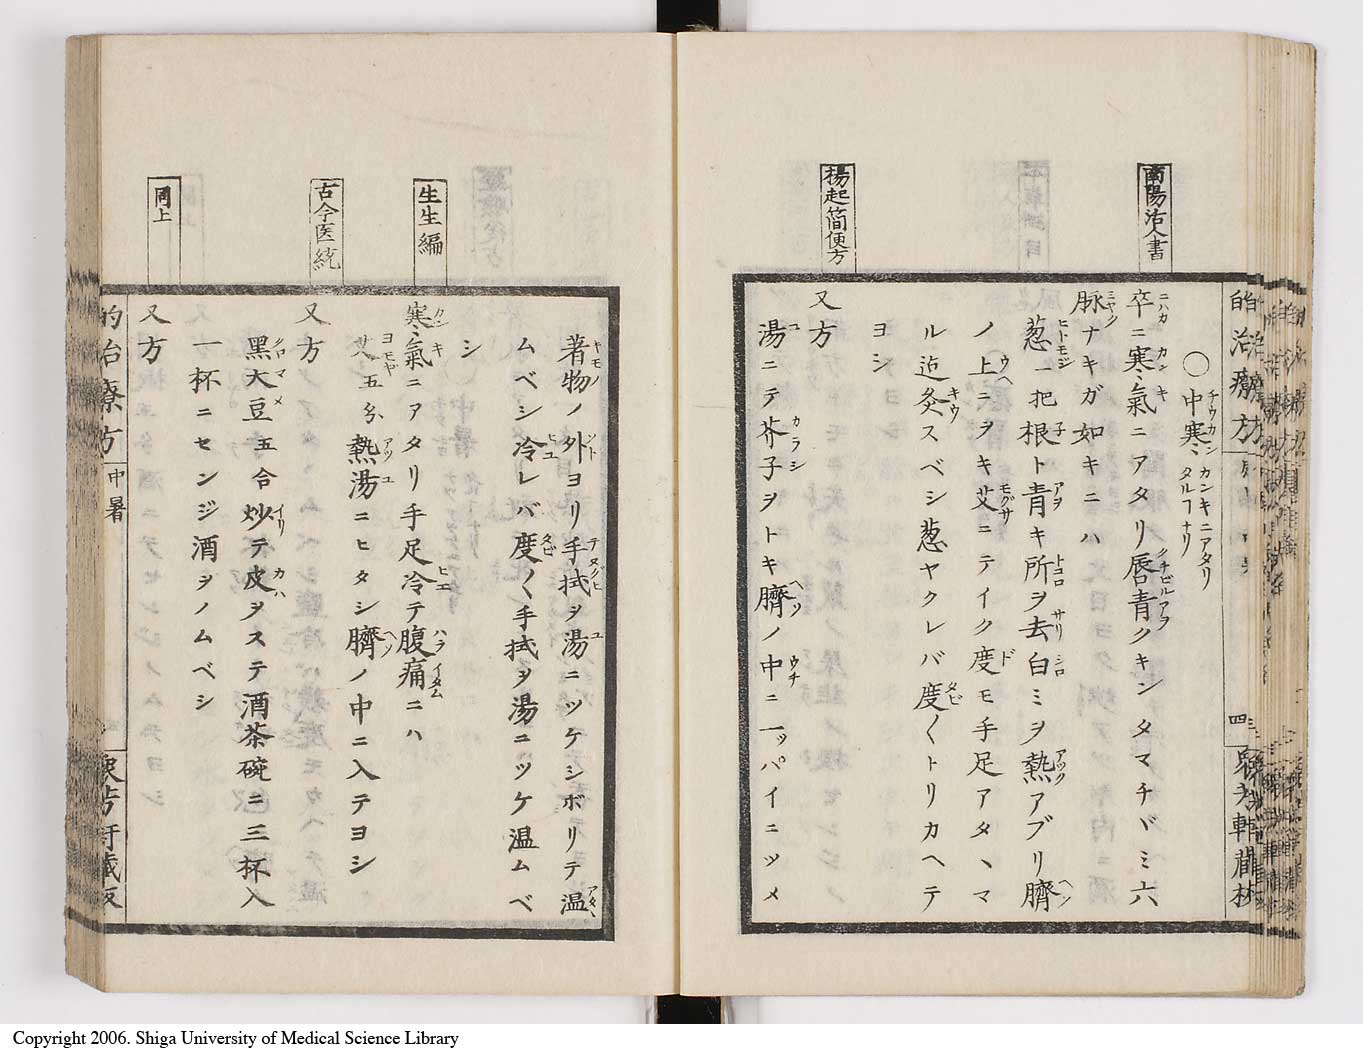 南陽活人書
楊起簡便方
的治療方
四
〇中寒 カンキニアタリ
タルフナリ
卒ニ寒氣ニアタリ唇青クキンタマチヾミ六
脉ナキガ如キニハ
葱一把根ト青キ所ヲ去白ミヲ熱アブリ臍
ノ上ニヲキ艾ニテイク度モ手足アタヽマ
ル迠灸スベシ葱ヤクレバ度〱トリカヘテ
ヨシ
又方
湯ニテ芥子ヲトキ臍ノ中ニ一ッパイニツメ
生生編
古今医統
同上
著物ノ外ヨリ手拭ヲ湯ニツケシボリテ温
ムベシ冷レバ度〱手拭ヲ湯ニツケ温ムベ
シ
寒氣ニアタリ手足冷テ腹痛ニハ
艾五分熱湯ニヒタシ臍ノ中ニ入テヨシ
又方
黑大豆五合炒テ皮ヲステ酒茶碗ニ三杯入
一杯ニセンジ酒ヲノムベシ
又方
的治療方 中暑
Copyright 2006. Shiga University of Medical Science Library